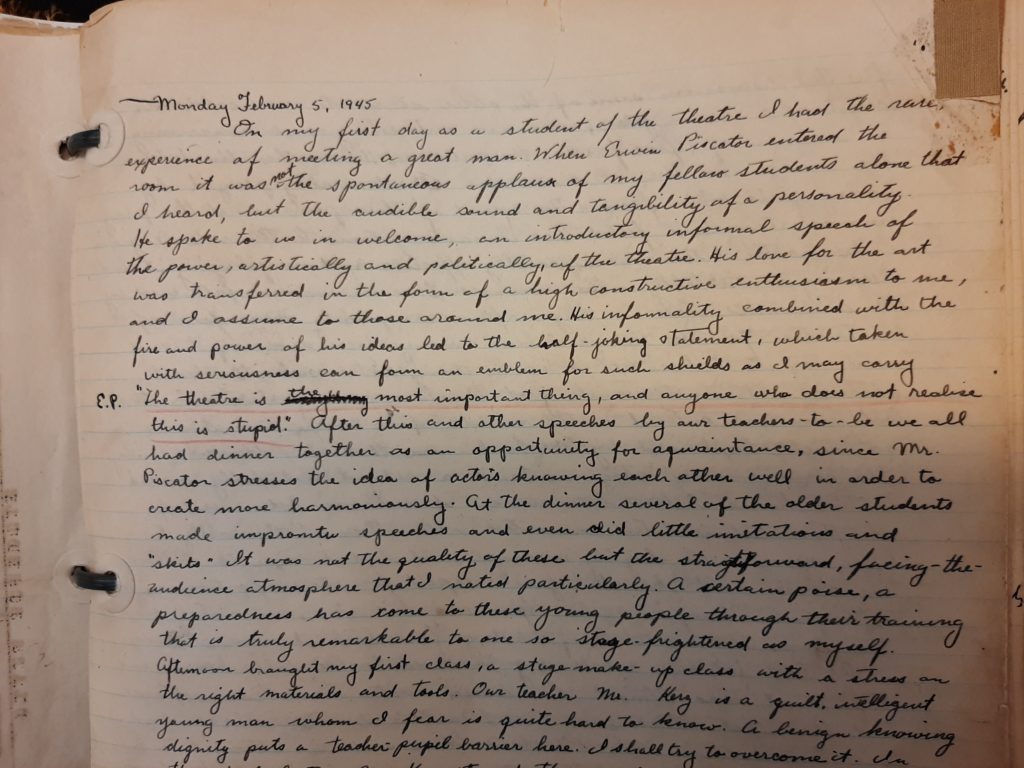 Monday February 5, 1945
On my first day as a student of the theatre I had the rare,
experience of meeting a great man. When Erwin Piscator entered the
room it was not the spontaneous applaus of my fellow students alone that
I heard, but the audible sound and tangibility of a personality.
He spoke to us in welcome, an introductory informal speech of
the power, artistically and politically, of the theatre. His love for the art
was transferred in the form of a high constructive enthusiasm to me,
and I assume to those around me. His informality combined with the
fire and power of his ideas led to the half-joking statement, which taken
with seriousness can form an emblem for such shields as I may carry
E.P. "The theatre is most important thing, and anyone who does not realise
this is stupid." After this and other speeches by our teachers-to-be we all
had dinner together as an opportunity for aquaintance, since Mr.
Piscator stresses the idea of actors knowing each other well in order to
create more harmoniously. At the dinner several of the older students
made impromtu speeches and even did little imitations and
"skits" It was not the quality of these but the straightforward, facing-the-
audience atmosphere that I noted particularly. A certain poise, a
preparedness has come to these young people through their training
that is truly remarkable to one so stage-frightened as myself.
Afternoon brought my first class, a stage-make-up class with a stress on
the right materials and tools. Our teacher Mr. Kerz is a quiet, intelligent
young man whom I fear is quite hard to know. A benign knowing
dignity puts a teacher-pupil barrier here. I shall try to overcome it. In